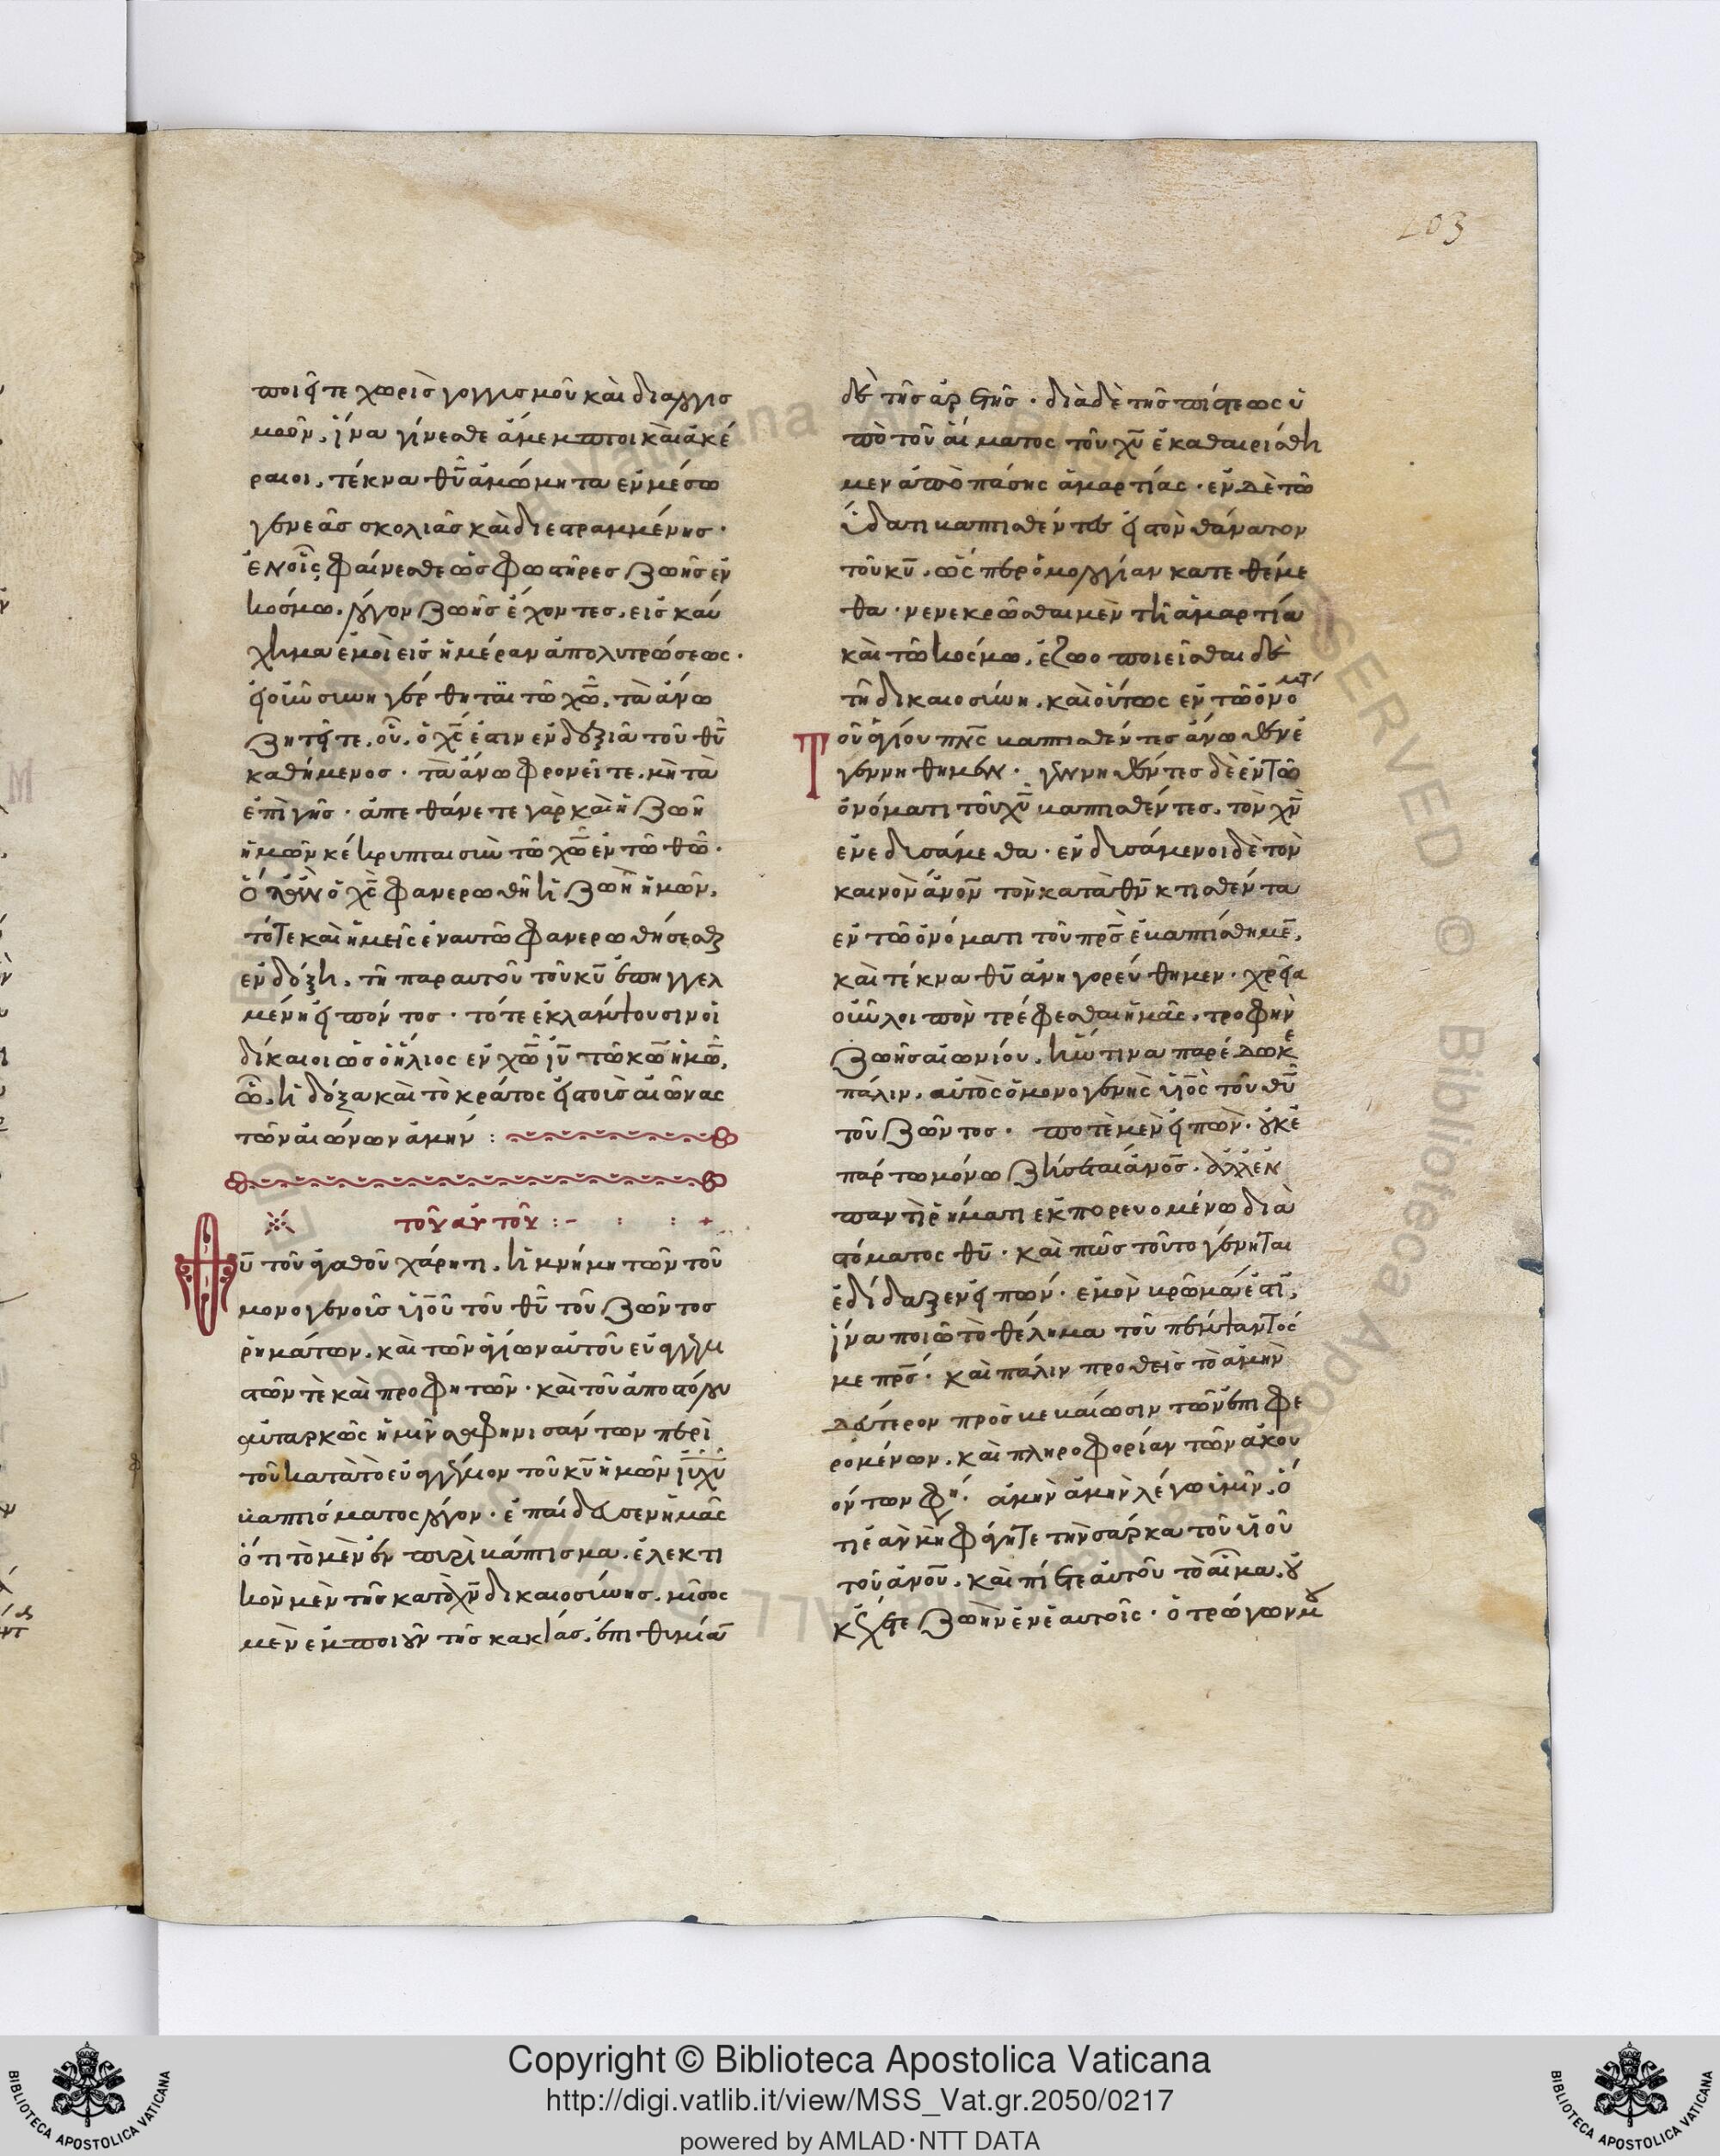 103
ποιεῖτε χωρὶς γογγισμοῦ καὶ διαλογισ
μοῦν, ἵνα γίνεσθε ἄμεμπτοι καὶ ἀκέ
ραιοι, τέκνα θῦ ἀμώμητα ἐν μέσω
γενεᾶς σκολιᾶς καὶ διεστραμμένης·
ἐν οἷς φαίνεσθε ὡς φωστῆρες ζωῆς ἐν
κόσμω, λόγον ζωῆς ἔχοντες, εἰς καύ
χημα ἐμοὶ εἰς ἡμέραν ἀπολυτρώσεως·
εἰ οὖν συνηγέρθηται τῶ χῶ, τὰ ἄνω
ζητεῖτε, οὗ ὁ χς ἐστιν ἐν δεξιᾶ τοῦ θῦ
καθήμενος· τὰ ἄνω φρονεῖτε, μὴ τὰ
ἐπὶ γῆς· ἀπεθάνετε γὰρ καὶ ἡ ζωὴ
ἡμῶν κέκρυπται σὺν τῶ χῶ ἐν τῶ θῶ·
ὅταν ὁ χς φανερωθῆ ἡ ζωὴ ἡμῶν,
τότε καὶ ἡμεῖς ἐν αυτῶ φανερωθήσεσθε
ἐν δόξη, τῆ παρ αυτοῦ τοῦ κῦ ἐπηγγελ
μένη εἰπόντος· τότε ἐκλάμψουσιν οἱ
δίκαιοι ὡς ὁ ἥλιος ἐν χῶ ιῦ τῶ κῶ ἡμῶ,
ὧ ἡ δόξα καὶ τὸ κράτος εἰς τοὺς αἰῶνας
τῶν αἰώνων ἀμήν :
τοῦ αὐτοῦ :-
Θῦ τοῦ ἀγαθοῦ χάρητι, ἡ μνήμη τῶν τοῦ
μονογενοῦς υἱοῦ τοῦ θῦ τοῦ ζῶντος
ῥημάτων, καὶ τῶν ἁγίων αὐτοῦ εὐαγγελι
στῶν τὲ καὶ προφητῶν· καὶ τοῦ ἀποστόλου
αὐταρκῶς ἡμῖν σαφηνισάντων περὶ
τοῦ κατὰ τὸ εὐαγγέλιον τοῦ κῦ ἡμῶν ιῦ χῦ
βαπτίσματος λόγον· ἐπαίδευσεν ἡμᾶς
ὅτι τὸ μὲν ἐν πυρὶ βάπτισμα, ἐλεκτι
κὸν μὲν τῆς κατὰ χν δικαιοσύνης, μῖσος
μὲν ἐμποιοῦν τῆς κακίας, ἐπιθυμίαν
δὲ τῆς ἀρετῆς· διὰ δὲ τῆς πίστεως ὑ
πὸ τοῦ αἵματος τοῦ χῦ ἐκαθαιρίσθη
μεν ἀπὸ πάσης ἁμαρτίας· ἐν δὲ τῶ
ὕδατι βαπτισθέντες εἰς τὸν θάνατον
τοῦ κῦ, ὥσπερ ὁμολογίαν κατεθέμε
θα· νενεκρῶσθαι μὲν τῆ ἁμαρτία
καὶ τῶ κόσμω, ἐζωοποιεῖσθαι δὲ
τῆ δικαιοσύνη, καὶ οὕτως ἐν τῶ ὀνόματι
Τοῦ ἁγίου πνς βαπτισθέντες ἄνωθεν ἐ
γεννήθημεν· γεννηθέντες δὲ ἐν τῶ
ὀνόματι τοῦ χῦ βαπτισθέντες, τὸν χν
ἐνεδισάμεθα· ἐνδισάμενοι δὲ τὸν
καινὸν ἄνον τὸν κατὰ θν κτισθέντα
ἐν τῶ ὀνόματι τοῦ πρς ἐβαπτίσθημεν,
καὶ τέκνα θῦ ἀνηγορεύθημεν· χρεία
οὖν λοιπὸν τρέφεσθαι ἡμᾶς, τροφὴν
ζωῆς αἰωνίου, ἥν τινα παρέδωκε
πάλιν, αὐτὸς ὁ μονογενὴς υἱὸς τοῦ θῦ
τοῦ ζῶντος· ποτὲ μὲν εἰπὼν· οὐκ ἐ
π ἄρτω μόνω ζήσεται ἄνος· ἀλλ ἐν
παντὶ ῥήματι ἐκπορευομένω διὰ
στόματος θῦ· καὶ πῶς τοῦτο γένηται
ἐδίδαξεν εἰπών· ἐμὸν βρῶμά ἐστι,
ἵνα ποιῶ τὸ θέλημα τοῦ πέμψαντός
με πρς· καὶ πάλιν προθεὶς τὸ ἀμὴν
δεύτερον πρὸς βεβαίωσιν τῶν ἐπιφε
ρομένων, καὶ πληροφορίαν τῶν ἀκου
όντων φη· ἀμὴν ἀμὴν λέγω ὑμῖν, ὅ
τι ἐὰν μὴ φάγητε τὴν σάρκα τοῦ υἱοῦ
τοῦ ἀνου, καὶ πίετε αὐτοῦ τὸ αἷμα, οὐ
κ ἔχετε ζωὴν ἐν ἑαυτοῖς· ὁ τρώγων μου
Copyright © Biblioteca Apostolica Vaticana
http://digi.vatlib.it/view/MSS_Vat.gr.2050/0217
powered by AMLAD·NTT DATA
BIBLIOTECA APOSTOLICA VATICANA
BIBLIOTECA APOSTOLICA VATICANA